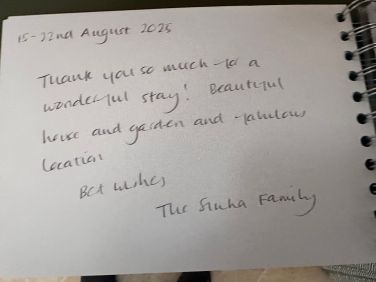 15-22nd August 2025
Thank you so much for a
wonderful stay! Beautiful
house and garden and fabulous
location
Best wishes
The Sinha Family